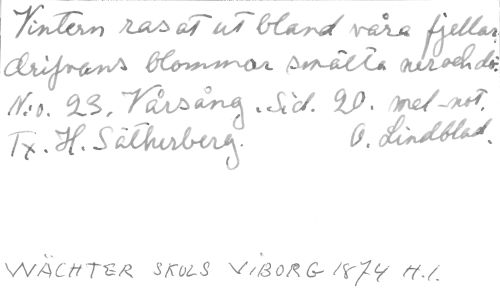 Vintern rasat ut bland våra fjellar.
drifvans blommor smälta ner och dö.
N:o. 23. Vårsång. Sid. 20. mel-not.
Tx. H. Sätherberg. O. Lindblad.
WÄCHTER SKOLS VIBORG 1874 H.1.